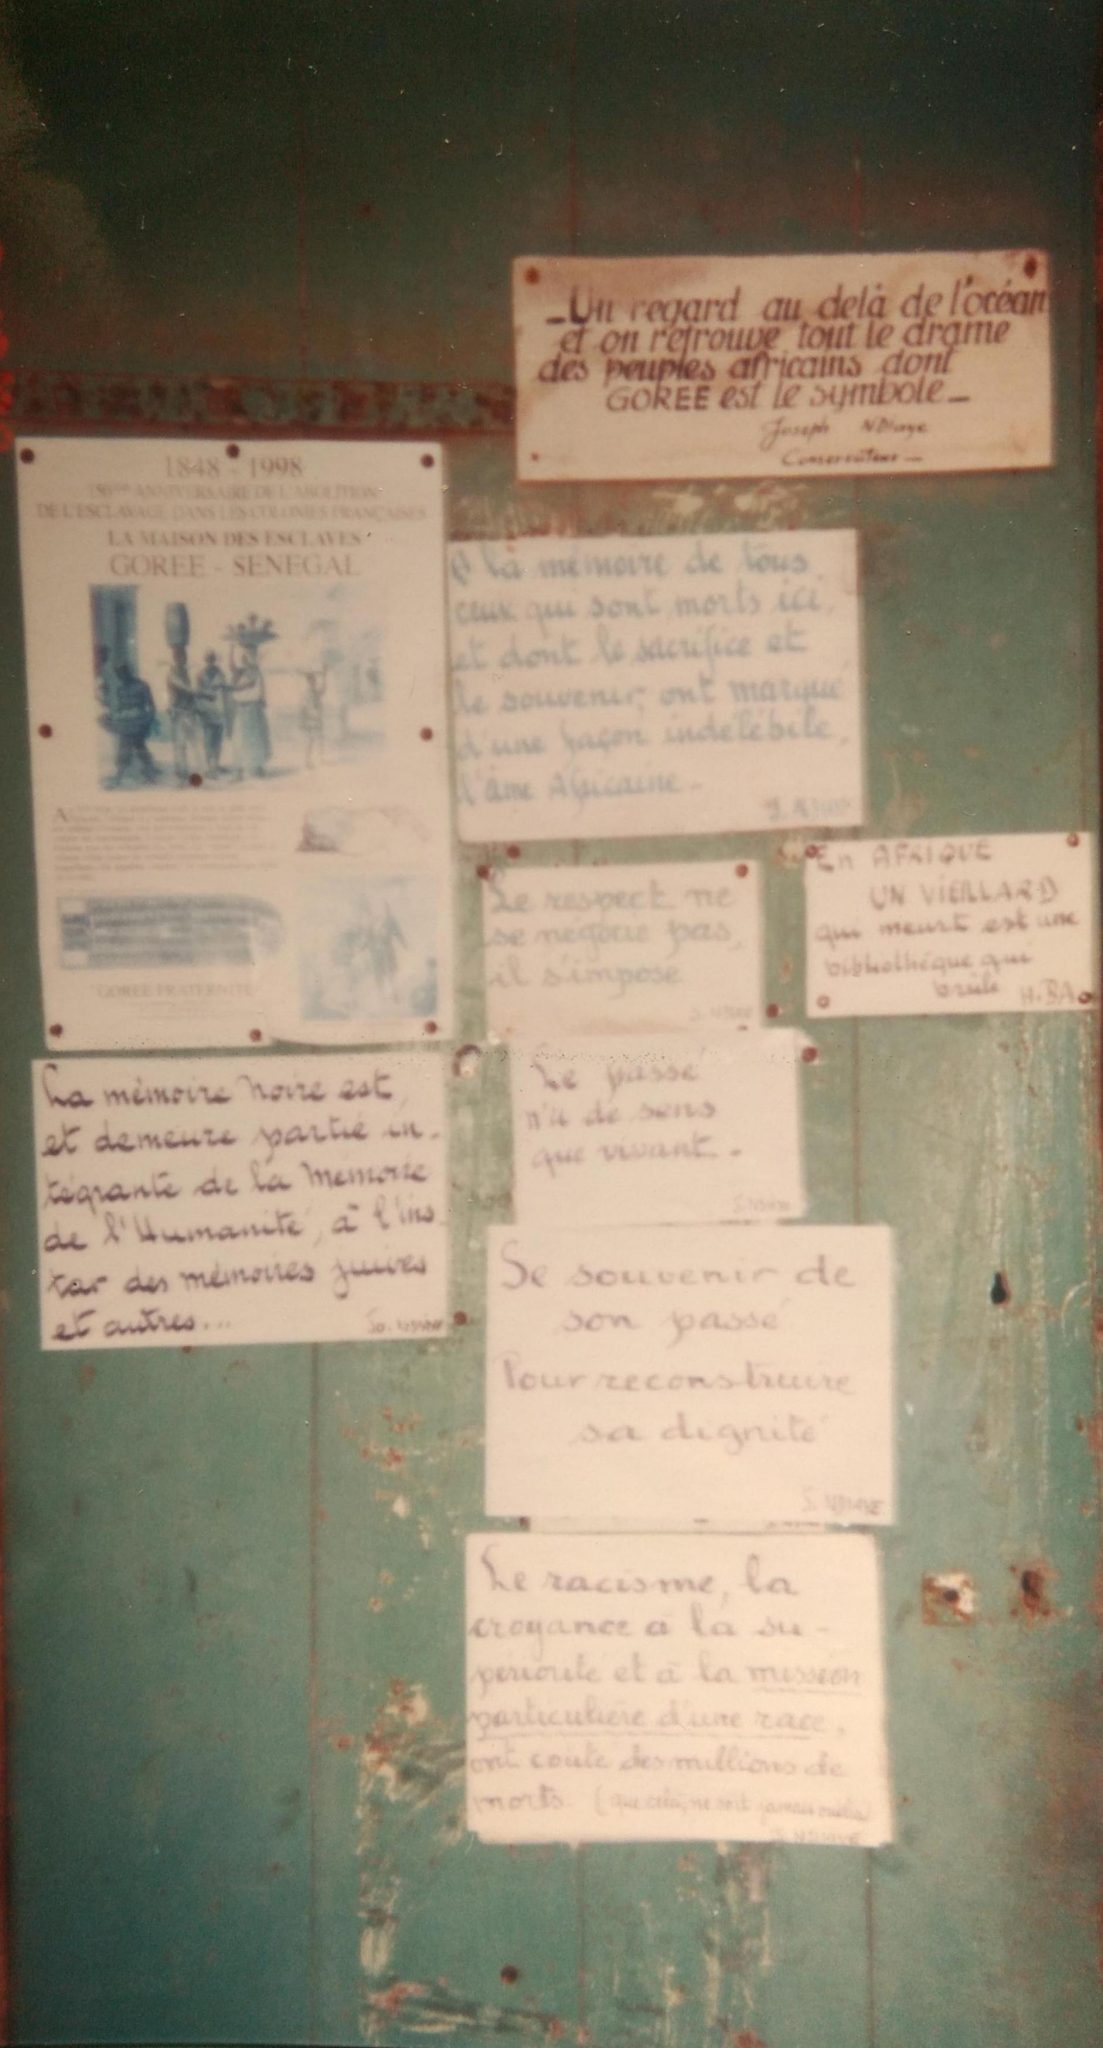 _Un regard au delà de l'océan
et on retrouve tout le drame
des peuples africains dont
GOREE est le symbole_
Joseph NDiaye
Conservateur_
1848 - 1998
150ème ANNIVERSAIRE DE L'ABOLITION
DE L'ESCLAVAGE DANS LES COLONIES FRANÇAISES
LA MAISON DES ESCLAVES
GOREE - SENEGAL
GOREE FRATERNITE
A la mémoire de tous
ceux qui sont morts ici,
et dont le sacrifice et
le souvenir, ont marqué
d'une façon indélébile,
l'âme Africaine.
J. NDIAYE
Le respect ne
se négocie pas,
il s'impose
J. NDIAYE
En AFRIQUE
UN VIEILLARD
qui meurt est une
bibliothèque qui
brûle H. BA
La mémoire Noire est,
et demeure partie in-
tégrante de la Mémoire
de l'Humanité, à l'ins-
tar des mémoires juives
et autres...
Le passé
n'a de sens
que vivant.
J. NDIAYE
Se souvenir de
son passé
Pour reconstruire
sa dignité
J. NDIAYE
Le racisme, la
croyance à la su-
périorité et à la mission
particulière d'une race,
ont coûté des millions de
morts. (que cela, ne soit jamais oublié)
J. NDIAYE